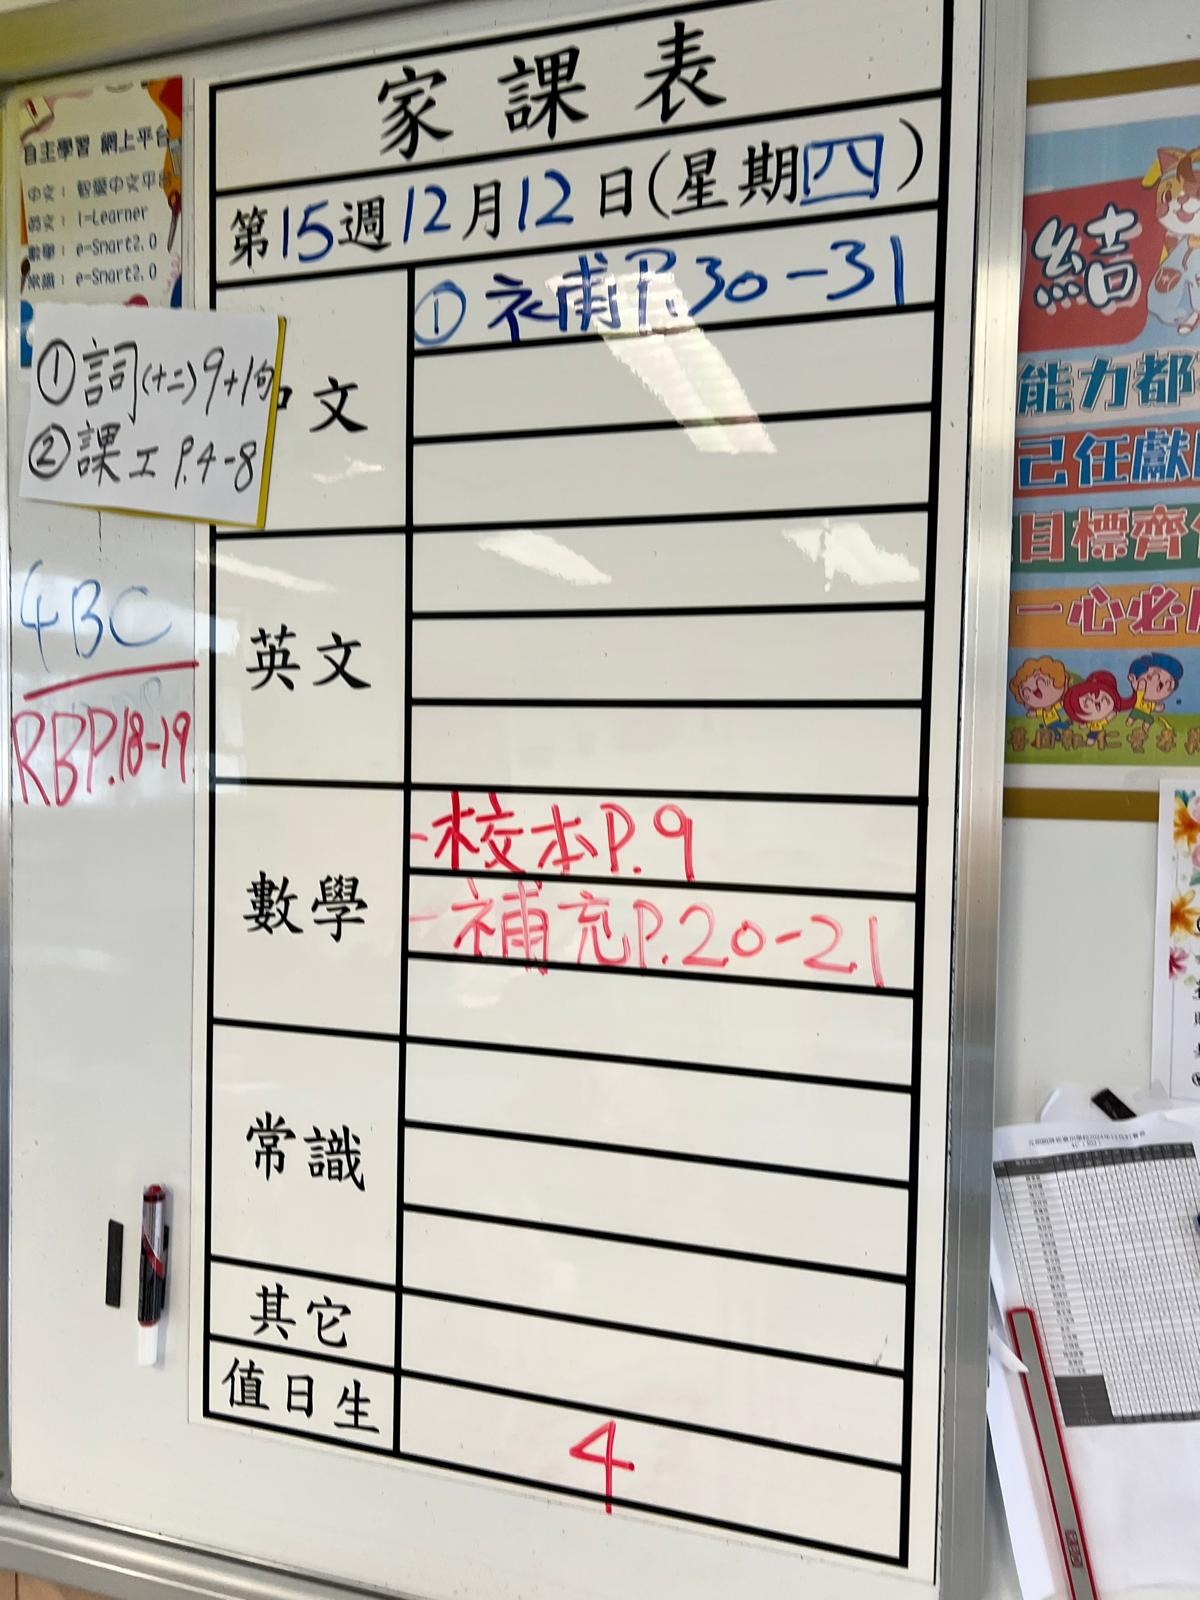 家課表
第15週12月12日(星期四)
中文
① 补甫P.30-31
英文
數學
-校本P.9
-補充P.20-21
常識
其它
值日生
4
自主學習 網上平台
中文：智愛中文平台
英文：i-Learner
數學：e-Smart2.0
常識：e-Smart2.0
①詞(十二)9+1句
②課工 P.4-8
4BC
RBP.18-19
結
能力都
己任獻
目標齊
一心必